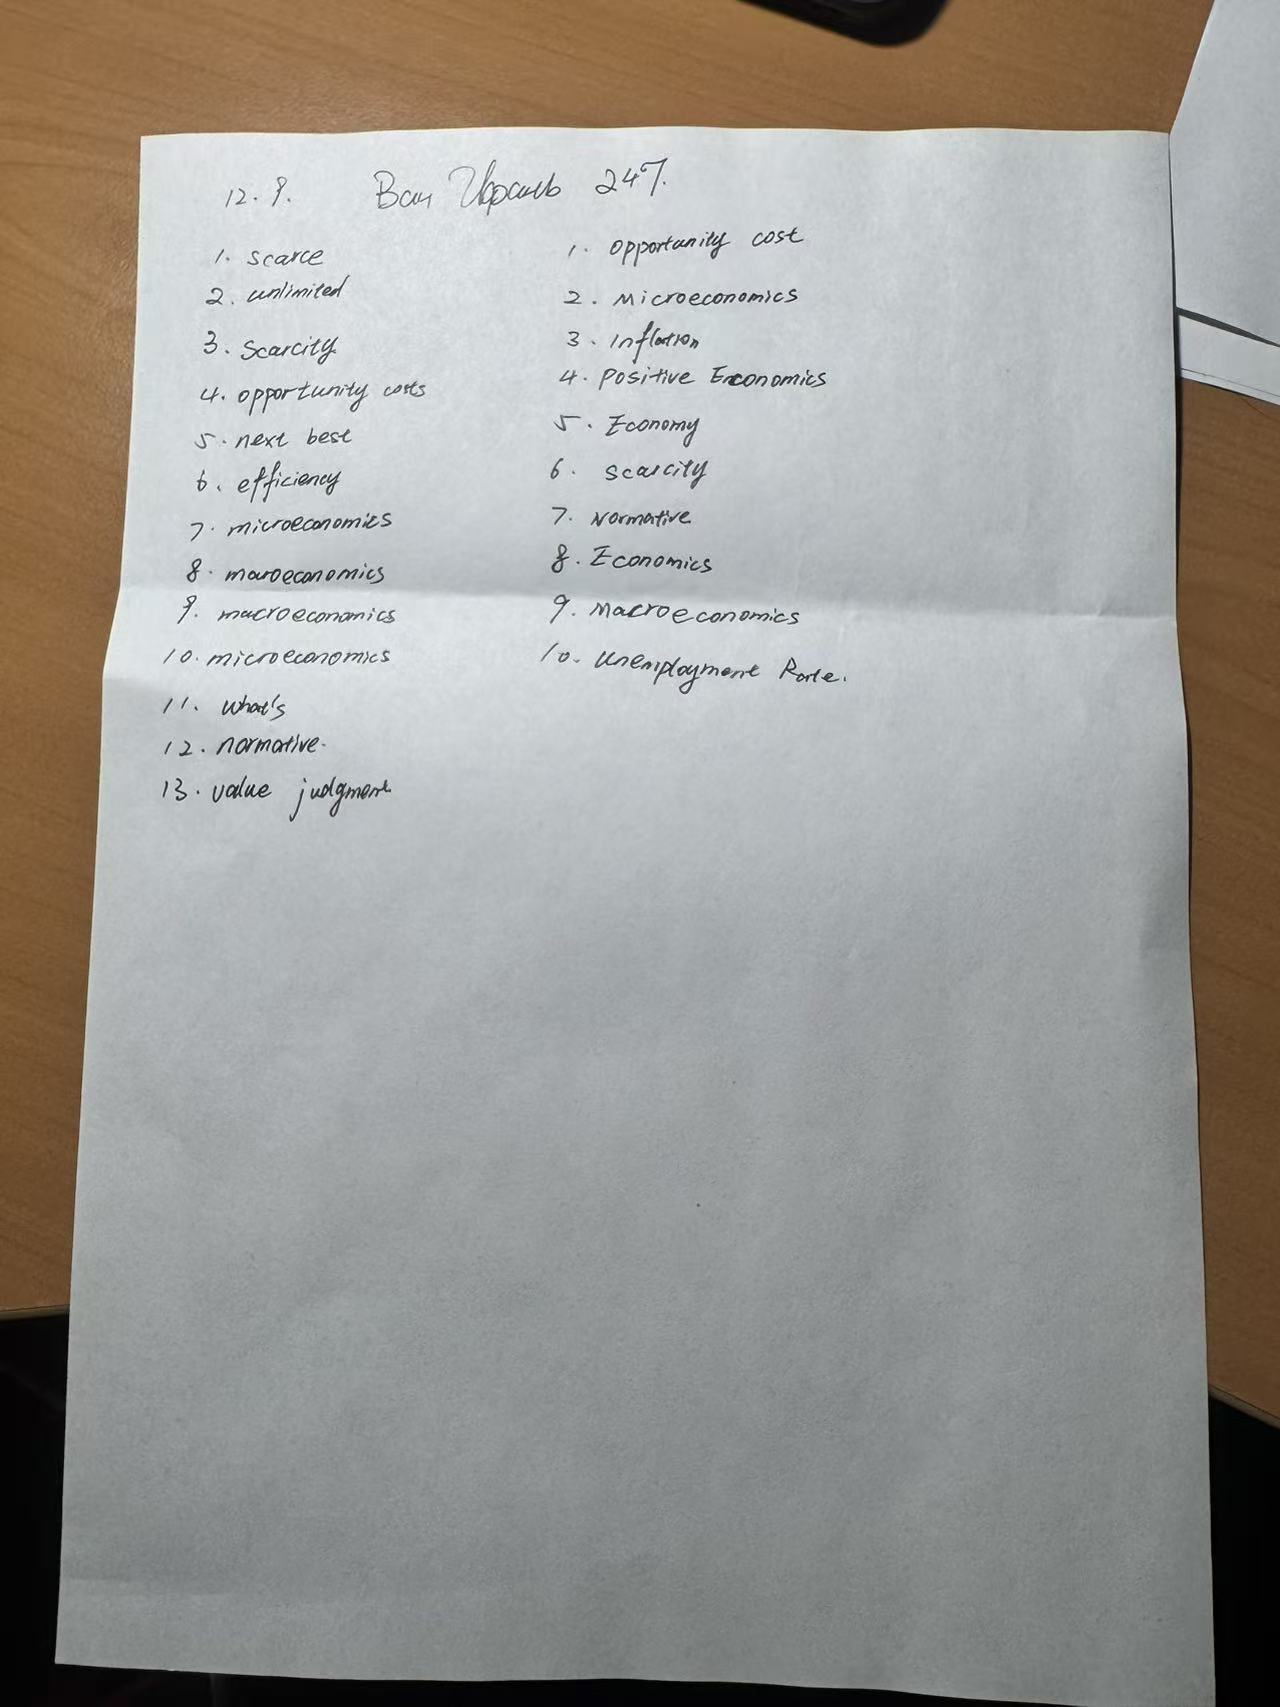 12.9. Ван 247.
1. scarce
2. unlimited
3. Scarcity
4. opportunity costs
5. next best
6. efficiency
7. microeconomics
8. macroeconomics
9. macroeconomics
10. microeconomics
11. what's
12. normative.
13. value judgment
1. opportunity cost
2. Microeconomics
3. Inflation
4. Positive Economics
5. Economy
6. scarcity
7. Normative
8. Economics
9. Macroeconomics
10. Unemployment Rate.